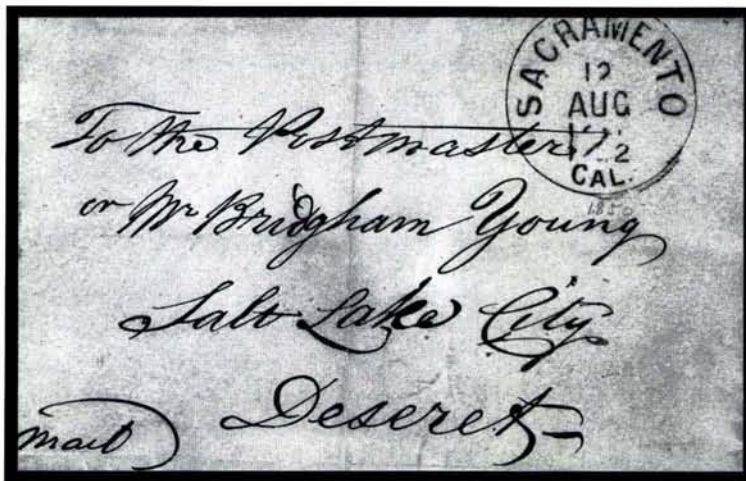 SACRAMENTO
12
AUG
CAL.
1850
To the Postmaster
or Mr Bridgham Young
Salt Lake City
Deseret
mail